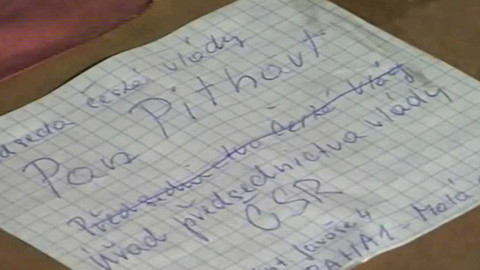 předseda české vlády
Pan Pithart
Předsednictvo české vlády
Úřad předsednictva vlády
ČSR
4
PRAHA 1 - Malá